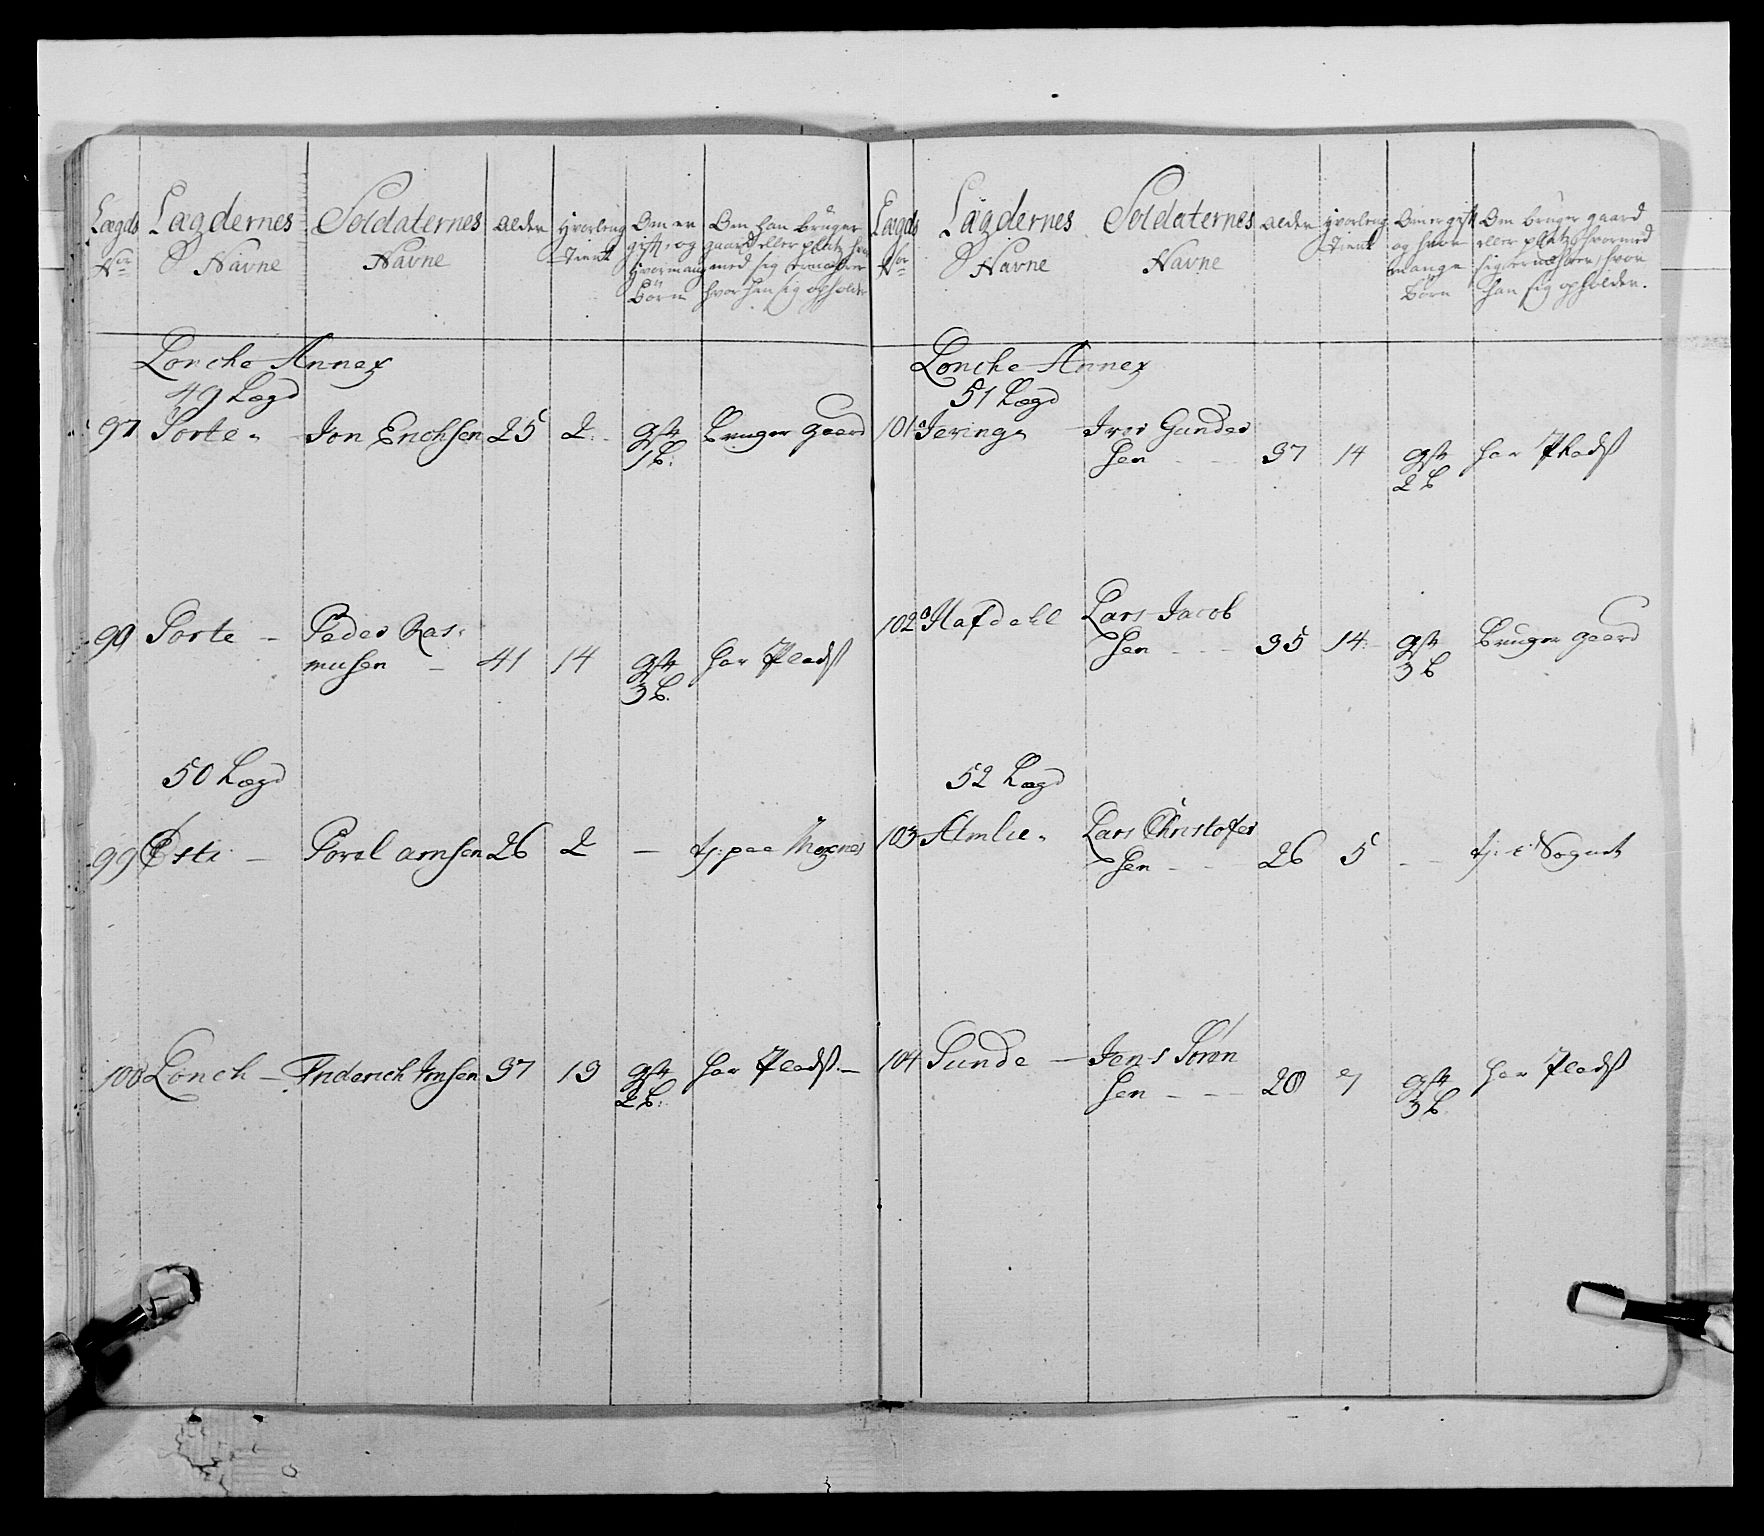 Lægds Nor
Lægdernes Navne
Soldaternes Navne
Alder
Hvorleng Tient
Om er gift, og Hvormang Börn
Om han bruger gaard eller platz hvor med sig ernæhrer hvor han sig opholder
Lonche Annex
49 Lægd
97 Sorte - Jon Erichsen 25 2 - gift 1 b: Bruger gaard
98 Sorte - Peder Ras:
musen - 41 14 gift 3 b. har Pladß
50 Lægd
99 Østi - Povel arnsen 26 2 - tj: paa Moxnes
100 Lonch - Friderich Jonsen 37 13 gift 2 b: har Pladß -
Lægds Nor
Lægdernes Navne
Soldaternes Navne
Alder
Hvorleng Tient
Om er gift og hvor mange Börn
Om bruger gaard eller platz, hvormed sig ernæhrer, hvor han sig opholder.
Lonche Annex
51 Lægd
101 Jering - Iver Gunder
sen - 37 14 gift 2 b har Pladß
102 Hafdell Lars Jacob
sen - - 35 14 - gift 3 b Bruger gaard
52 Lægd
103 Almlie - Lars Christofer
sen - - 26 5 - tj: i Sognet
104 Sunde - Jens Sørøn
sen - - 28 7 gift 3 b har Pladß